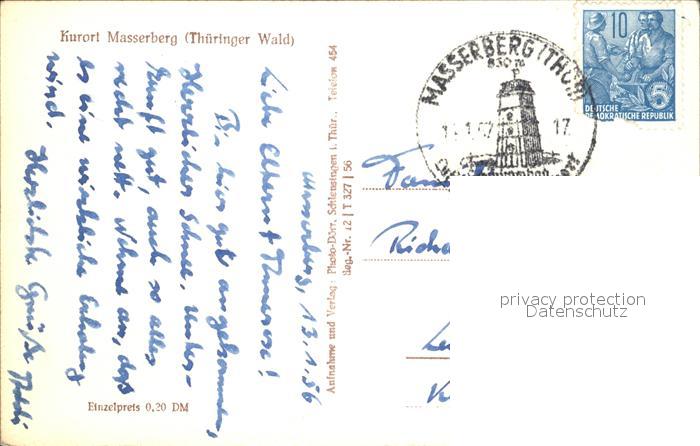 Kurort Masserberg (Thüringer Wald)
Masserberg, 13.1.56
Liebe Eltern +
Bin hier gut angekommen,
Herrlicher Schnee, Unter-
kunft gut, auch so alles
recht nett. Nehme an, daß
es eine wirkliche Erholung
wird.
Herzliche Grüße
Einzelpreis 0,20 DM
Aufnahme und Verlag: Photo-Dörr, Schleusingen i. Thür., Telefon 454
Reg.-Nr. 12 | T 327 | 56
MASSERBERG (THÜR)
830 m
17
10
DEUTSCHE
DEMOKRATISCHE REPUBLIK
5
Fam
Richa
privacy protection
Datenschutz